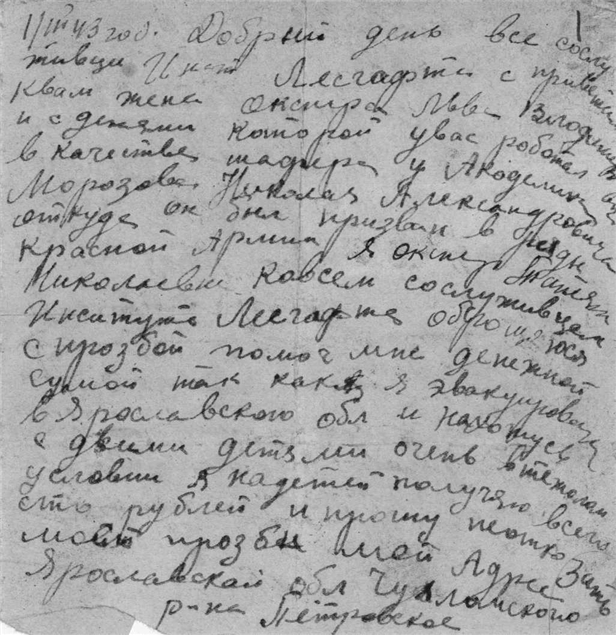 1/III 43 год. Добрый день все сослу
живци Инст Лесгафта с приветом
квам жена Окстра Льва Владимир
и с детями которой увас роботал
в качестве шофера у Акодемика
Морозова Николая Александровича
откуда он был призван в ряды
Красной Армии Я Окстр Татьян
Николаевна Ковсем сослуживцам
Инситута Лесгафта оброщаюся
с прозбой помоч мне денежной
сумой так как я эвакуирована
в Ярославского обл и нахожусь
с двоими детями очень
условии я надетей получяю всего
сто рублей и прошу неотка зать
моей прозбы мой Адрес
Ярославской обл Чухломского
р-на Петровское